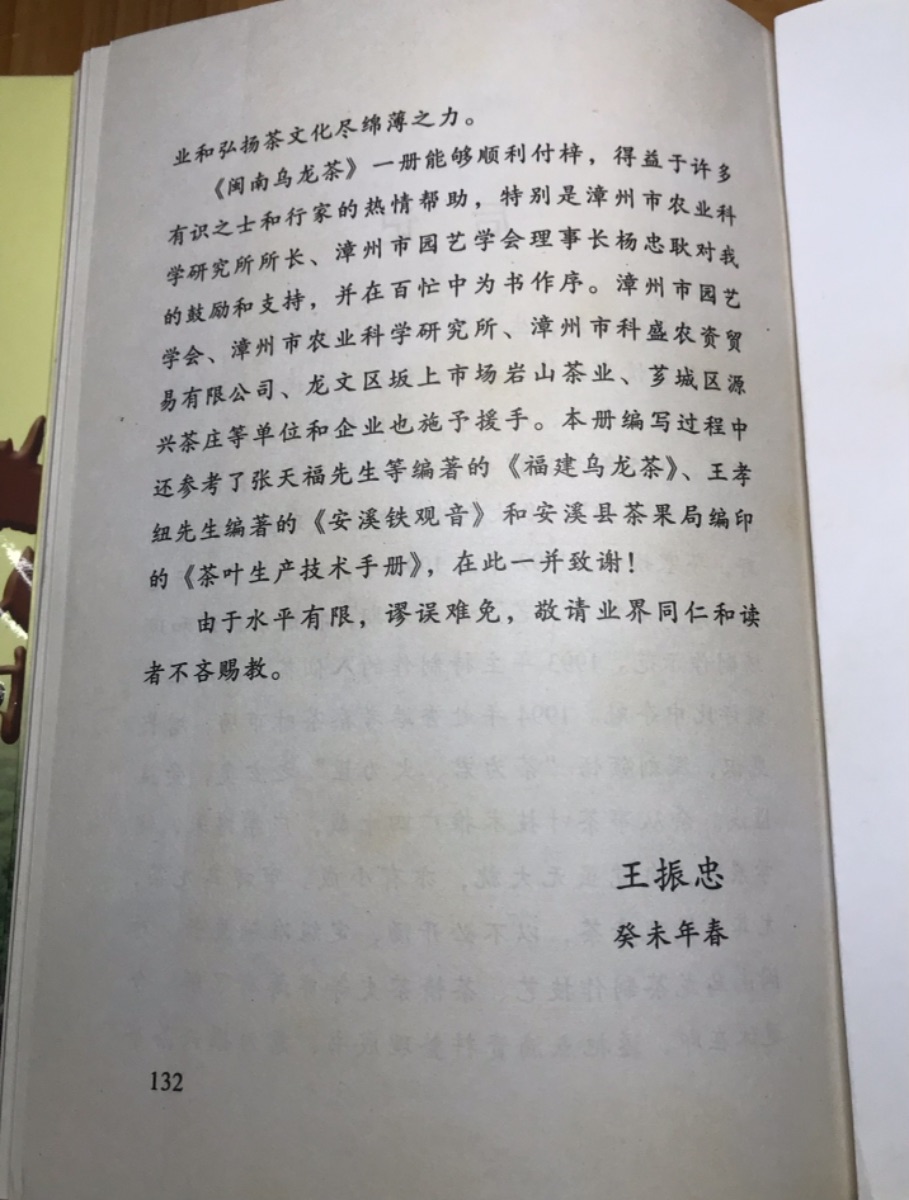 业和弘扬茶文化尽绵薄之力。
《闽南乌龙茶》一册能够顺利付梓，得益于许多
有识之士和行家的热情帮助，特别是漳州市农业科
学研究所所长、漳州市园艺学会理事长杨忠耿对我
的鼓励和支持，并在百忙中为书作序。漳州市园艺
学会、漳州市农业科学研究所、漳州市科盛农资贸
易有限公司、龙文区坂上市场岩山茶业、芗城区源
兴茶庄等单位和企业也施予援手。本册编写过程中
还参考了张天福先生等编著的《福建乌龙茶》、王孝
纽先生编著的《安溪铁观音》和安溪县茶果局编印
的《茶叶生产技术手册》，在此一并致谢！
由于水平有限，谬误难免，敬请业界同仁和读
者不吝赐教。
王振忠
癸未年春
132